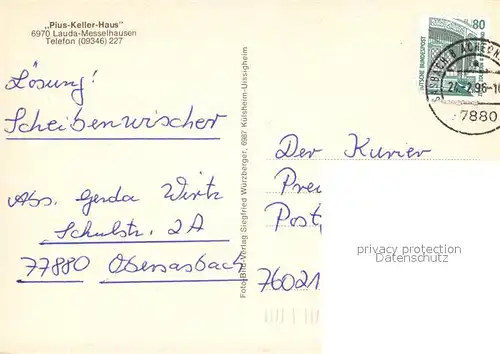 „Pius-Keller-Haus"
6970 Lauda-Messelhausen
Telefon (09346) 227
Lösung!
Scheibenwischer
Abs. Gerda Wirtz
Schulstr. 2A
77880 Obersasbach
Foto/Bild-Verlag Siegfried Würzberger, 6987 Külsheim-Uissigheim
80
DEUTSCHE BUNDESPOST
SASBACH B ACHERN
24.-2.96-10
7880
Der Kurier
Pre
Post
76021
privacy protection
Datenschutz